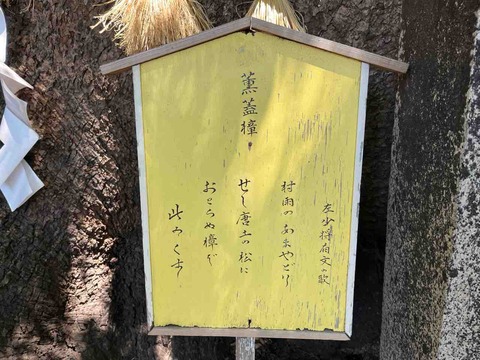 薫蓋樟
左少将有文の歌
村雨のあまやどり
せし唐土の松に
おとらぬ樟ぞ
此のくす